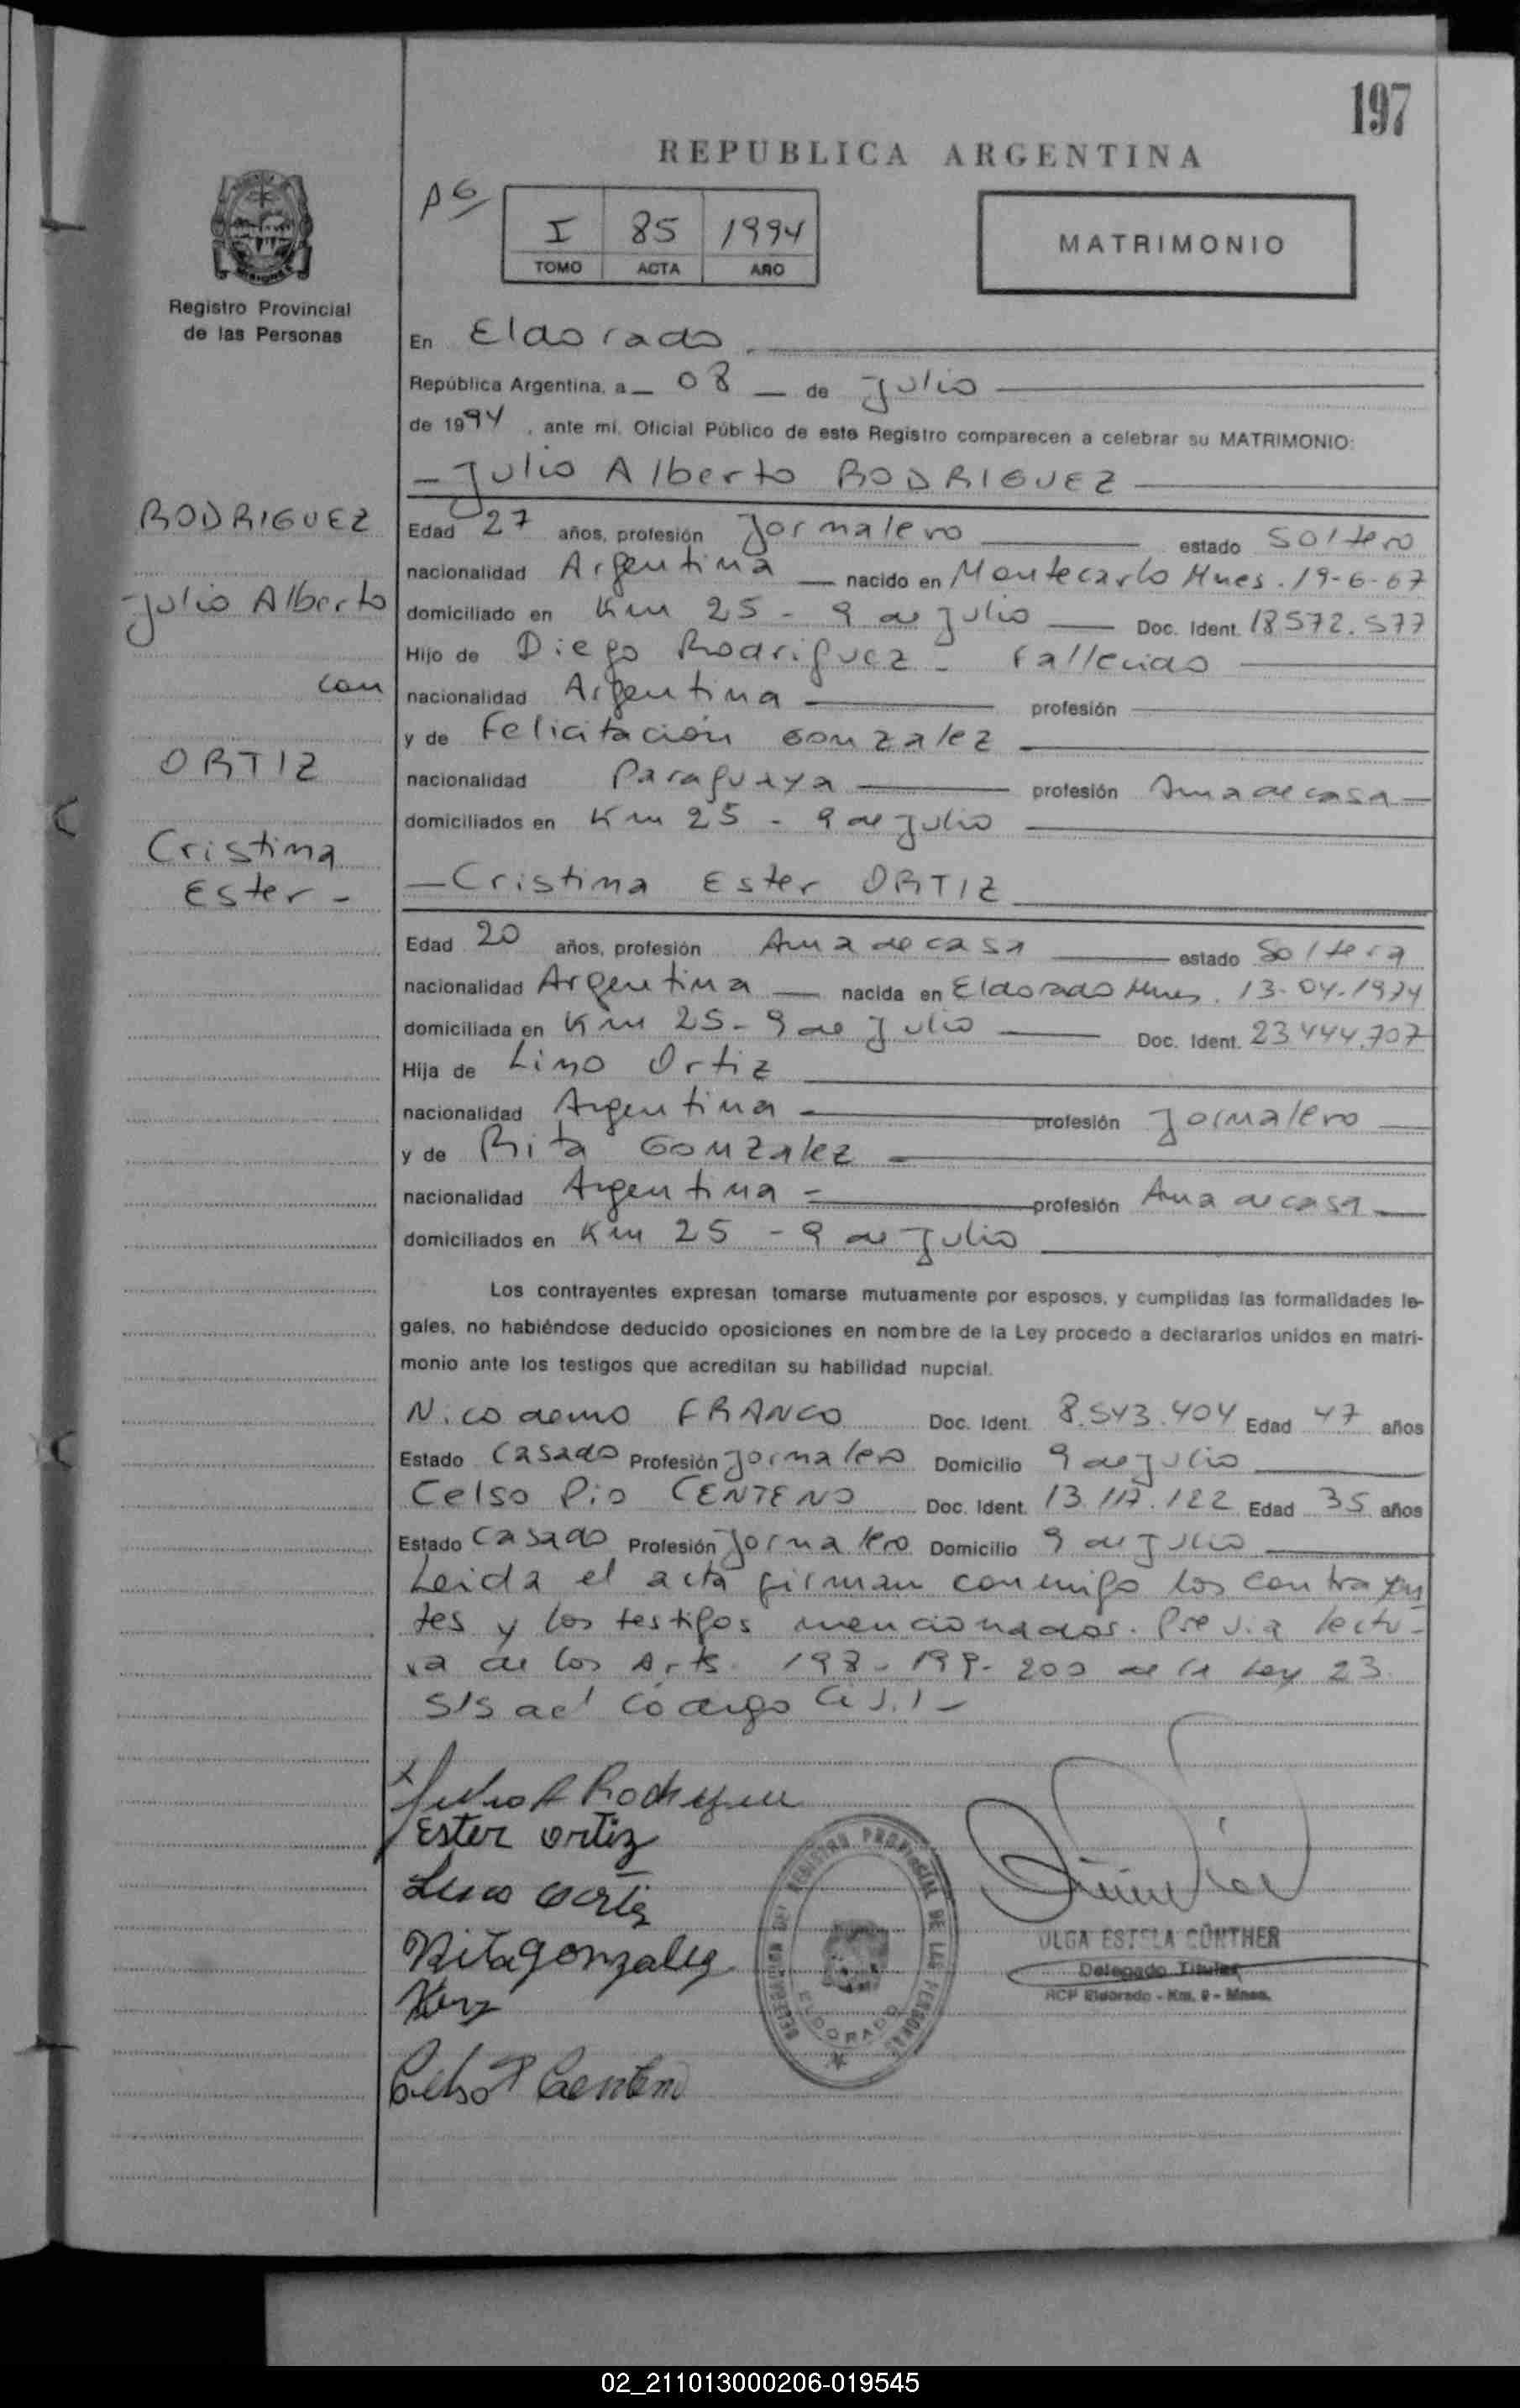 197
REPUBLICA ARGENTINA
I 85 1994
TOMO ACTA AÑO
MATRIMONIO
Registro Provincial
de las Personas
En Eldorado
República Argentina, a 08 de Julio
de 1994, ante mí, Oficial Público de este Registro comparecen a celebrar su MATRIMONIO:
Julio Alberto RODRIGUEZ
RODRIGUEZ
Julio Alberto
con
ORTIZ
Cristina
Ester -
Edad 27 años, profesión Jornalero estado Soltero
nacionalidad Argentina nacido en Montecarlo Mnes. 19-6-67
domiciliado en Km 25 - 9 de Julio Doc. Ident. 18.572.577
Hijo de Diego Rodriguez - Fallecido
nacionalidad Argentina profesión
y de Felicitación Gonzalez
nacionalidad Paraguaya profesión Ama de casa
domiciliados en Km 25 - 9 de Julio
Cristina Ester ORTIZ
Edad 20 años, profesión Ama de casa estado Soltera
nacionalidad Argentina nacida en Eldorado Mnes. 13-04-1974
domiciliada en Km 25 - 9 de Julio Doc. Ident. 23.444.707
Hija de Lino Ortiz
nacionalidad Argentina profesión Jornalero
y de Rita Gonzalez
nacionalidad Argentina profesión Ama de casa
domiciliados en Km 25 - 9 de Julio
Los contrayentes expresan tomarse mutuamente por esposos, y cumplidas las formalidades le-
gales, no habiéndose deducido oposiciones en nombre de la Ley procedo a declararlos unidos en matri-
monio ante los testigos que acreditan su habilidad nupcial.
Nicodemo FRANCO Doc. Ident. 8.543.404 Edad 47 años
Estado Casado Profesión Jornalero Domicilio 9 de Julio
Celso Pio CENTENO Doc. Ident. 13.117.122 Edad 35 años
Estado Casado Profesión Jornalero Domicilio 9 de Julio
Leida el acta firman conmigo los contrayen
tes y los testigos mencionados. Previa lectu-
ra de los Arts. 198-199-200 de la Ley 23.
515 del Código Civil -
Julio A Rodriguez
Ester ortiz
Lino Ortiz
Rita gonzalez
Celso P Centeno
DEL REGISTRO PROVINCIAL DE LAS PERSONAS
ELDORADO
OLGA ESTELA GÜNTHER
Delegado Titular
RCP Eldorado - Km. 9 - Mnes.
02_211013000206-019545